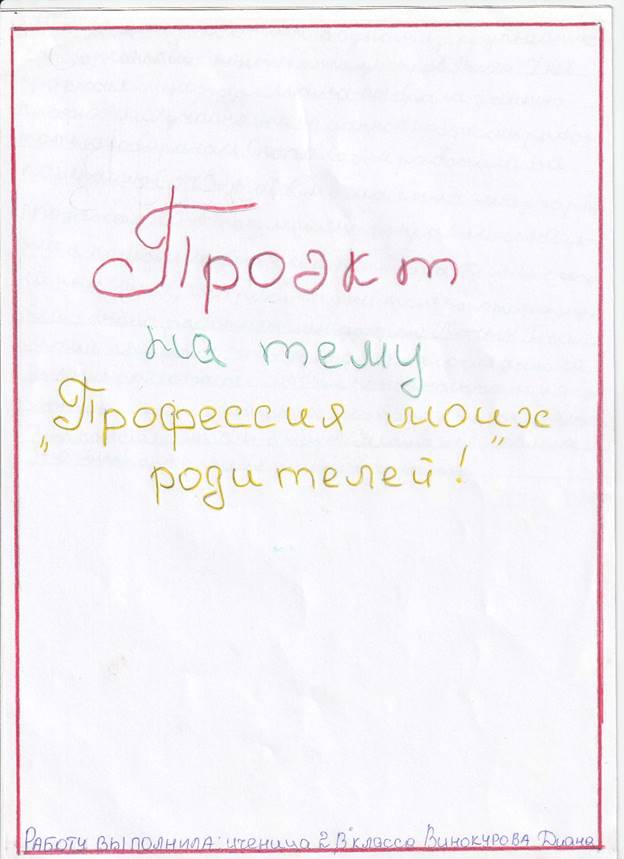 Проэкт
на тему
„Профессия моих"
родителей!
Работу выполнила: ученица 2"В" класса Винокурова Диана